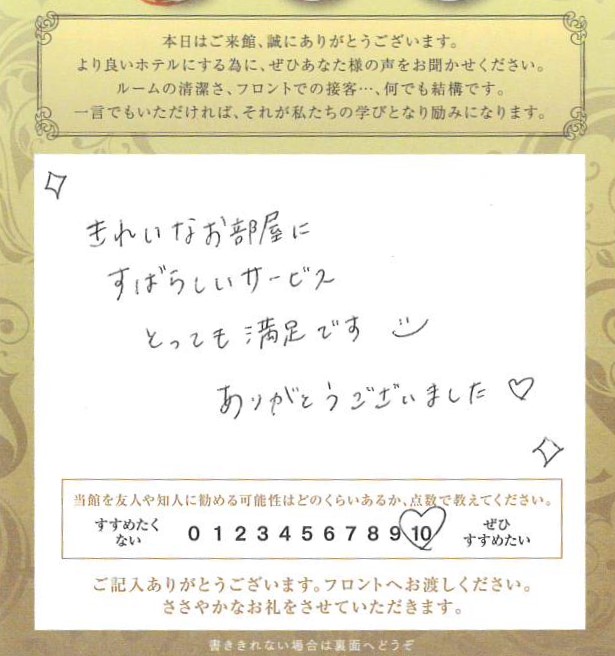 本日はご来館、誠にありがとうございます。
より良いホテルにする為に、ぜひあなた様の声をお聞かせください。
ルームの清潔さ、フロントでの接客…、何でも結構です。
一言でもいただければ、それが私たちの学びとなり励みになります。
きれいなお部屋に
すばらしいサービス
とっても満足です
ありがとうございました♡
当館を友人や知人に勧める可能性はどのくらいあるか、点数で教えてください。
すすめたくない 0 1 2 3 4 5 6 7 8 9 10 ぜひすすめたい
ご記入ありがとうございます。フロントへお渡しください。
ささやかなお礼をさせていただきます。
書ききれない場合は裏面へどうぞ